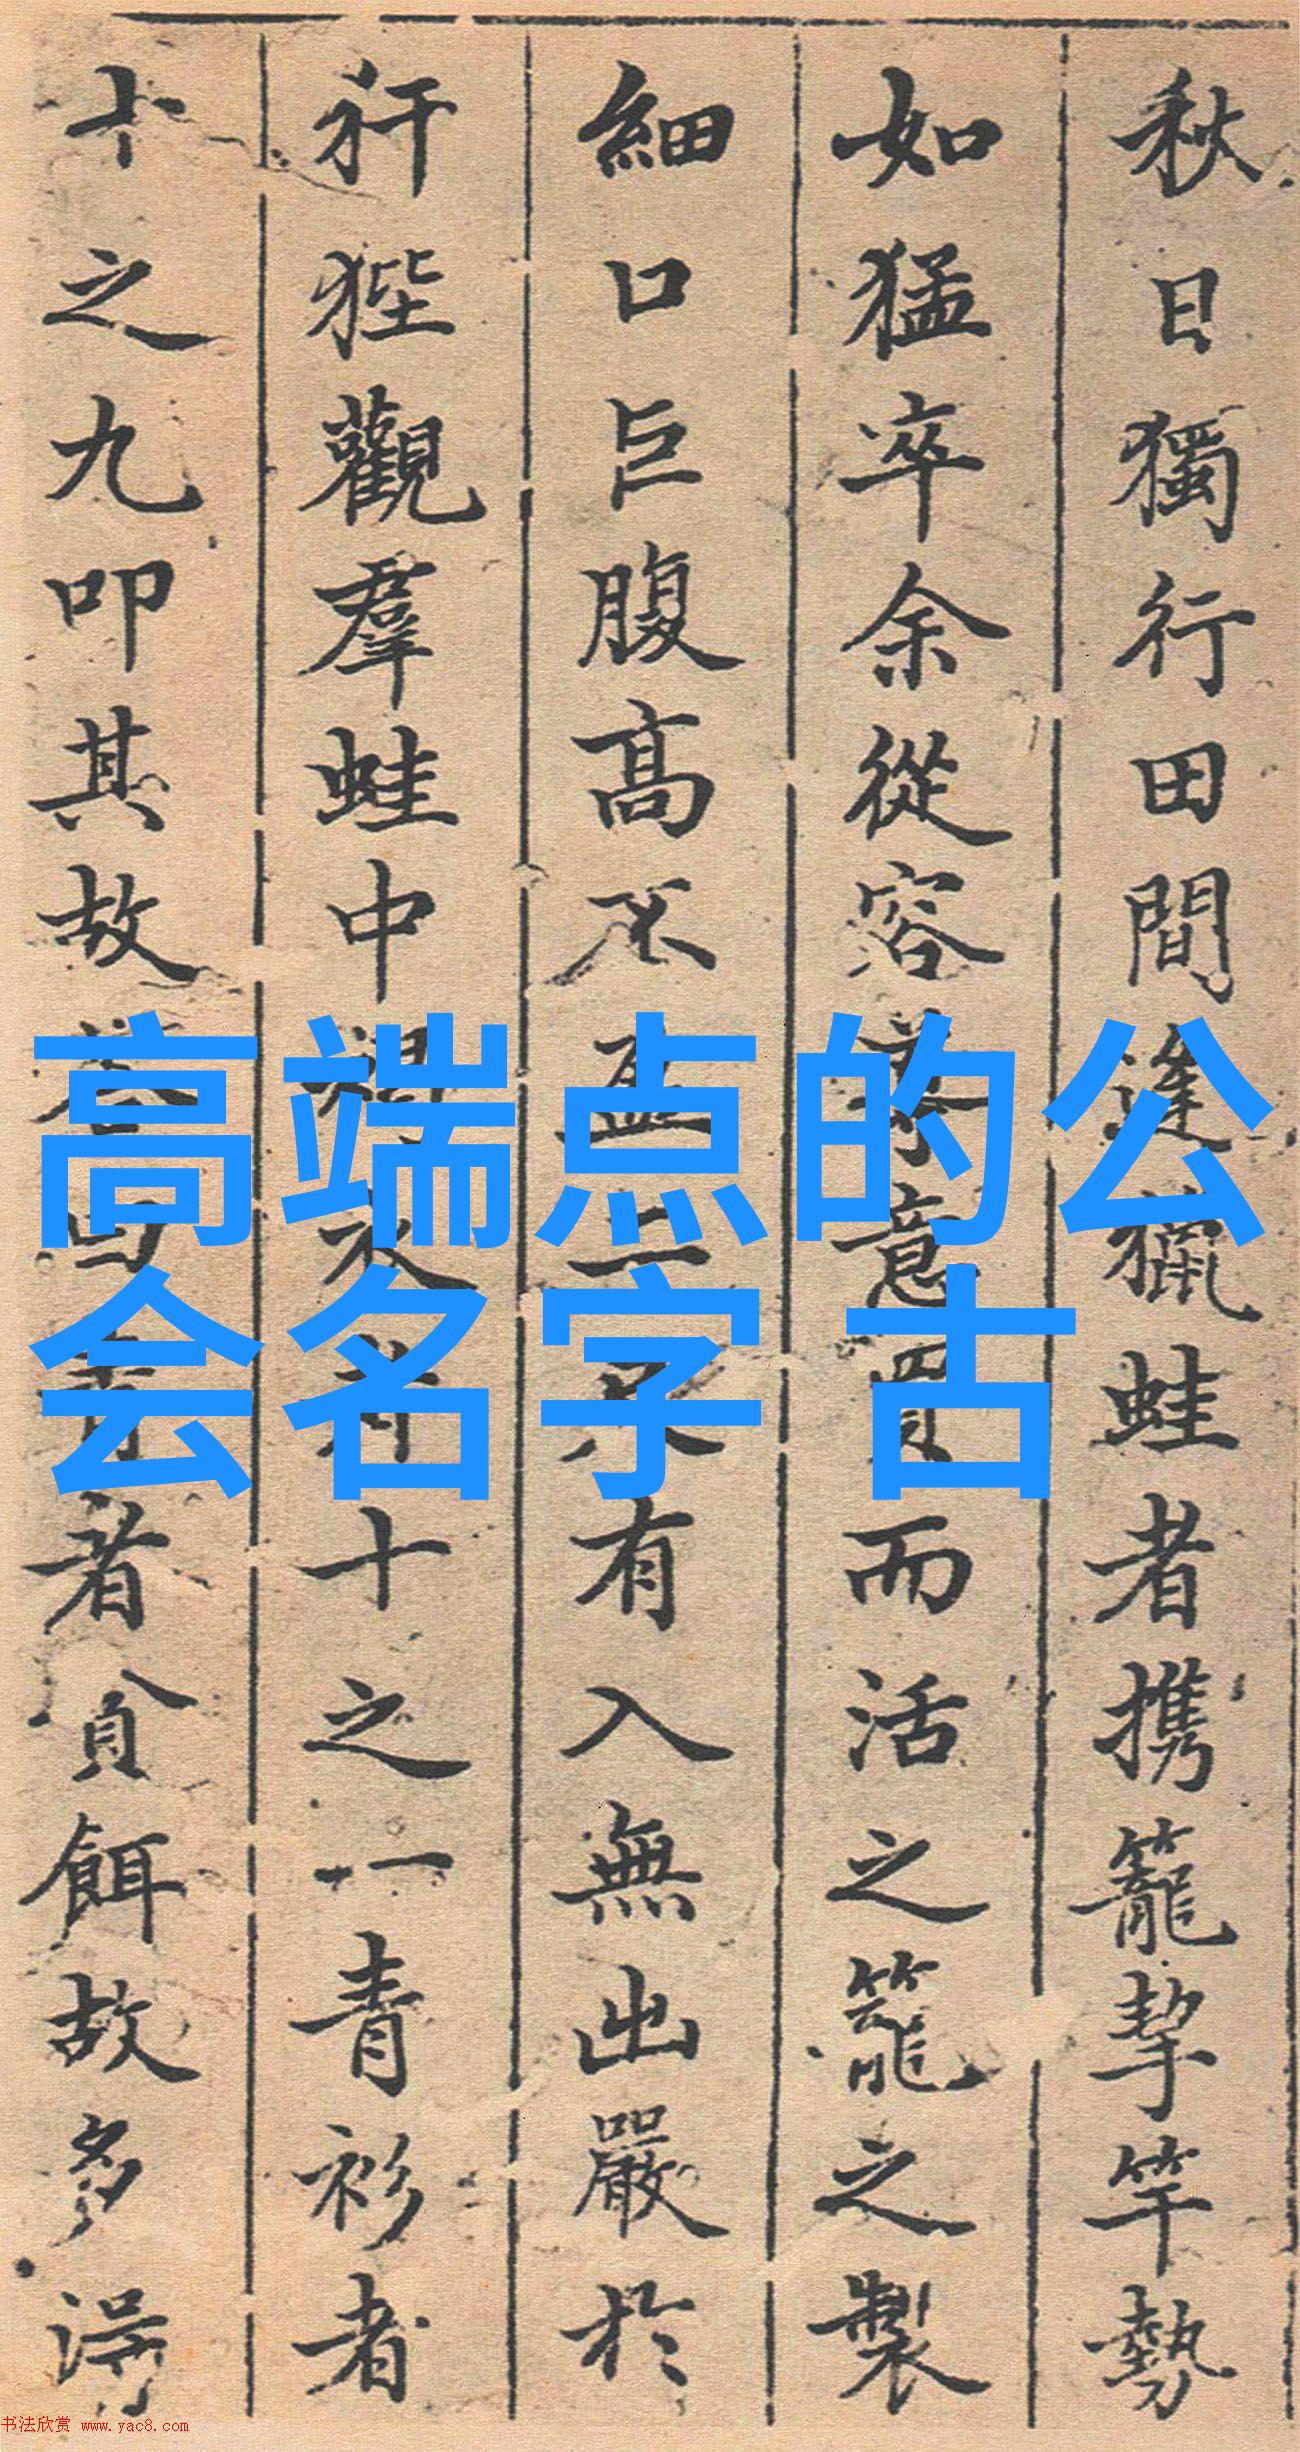 秋日獨行田間逢獵蛙者携籠挈竿勢
如猛卒余從容意買而活之籠之製
細口巨腹高不盈二尺有入無出嚴於
犴狴觀羣蛙中褐衣者十之一青衫者
十之九叩其故答曰青者貪餌故多得
高端点的公
会名字 古
书法欣赏 www.yac8.com